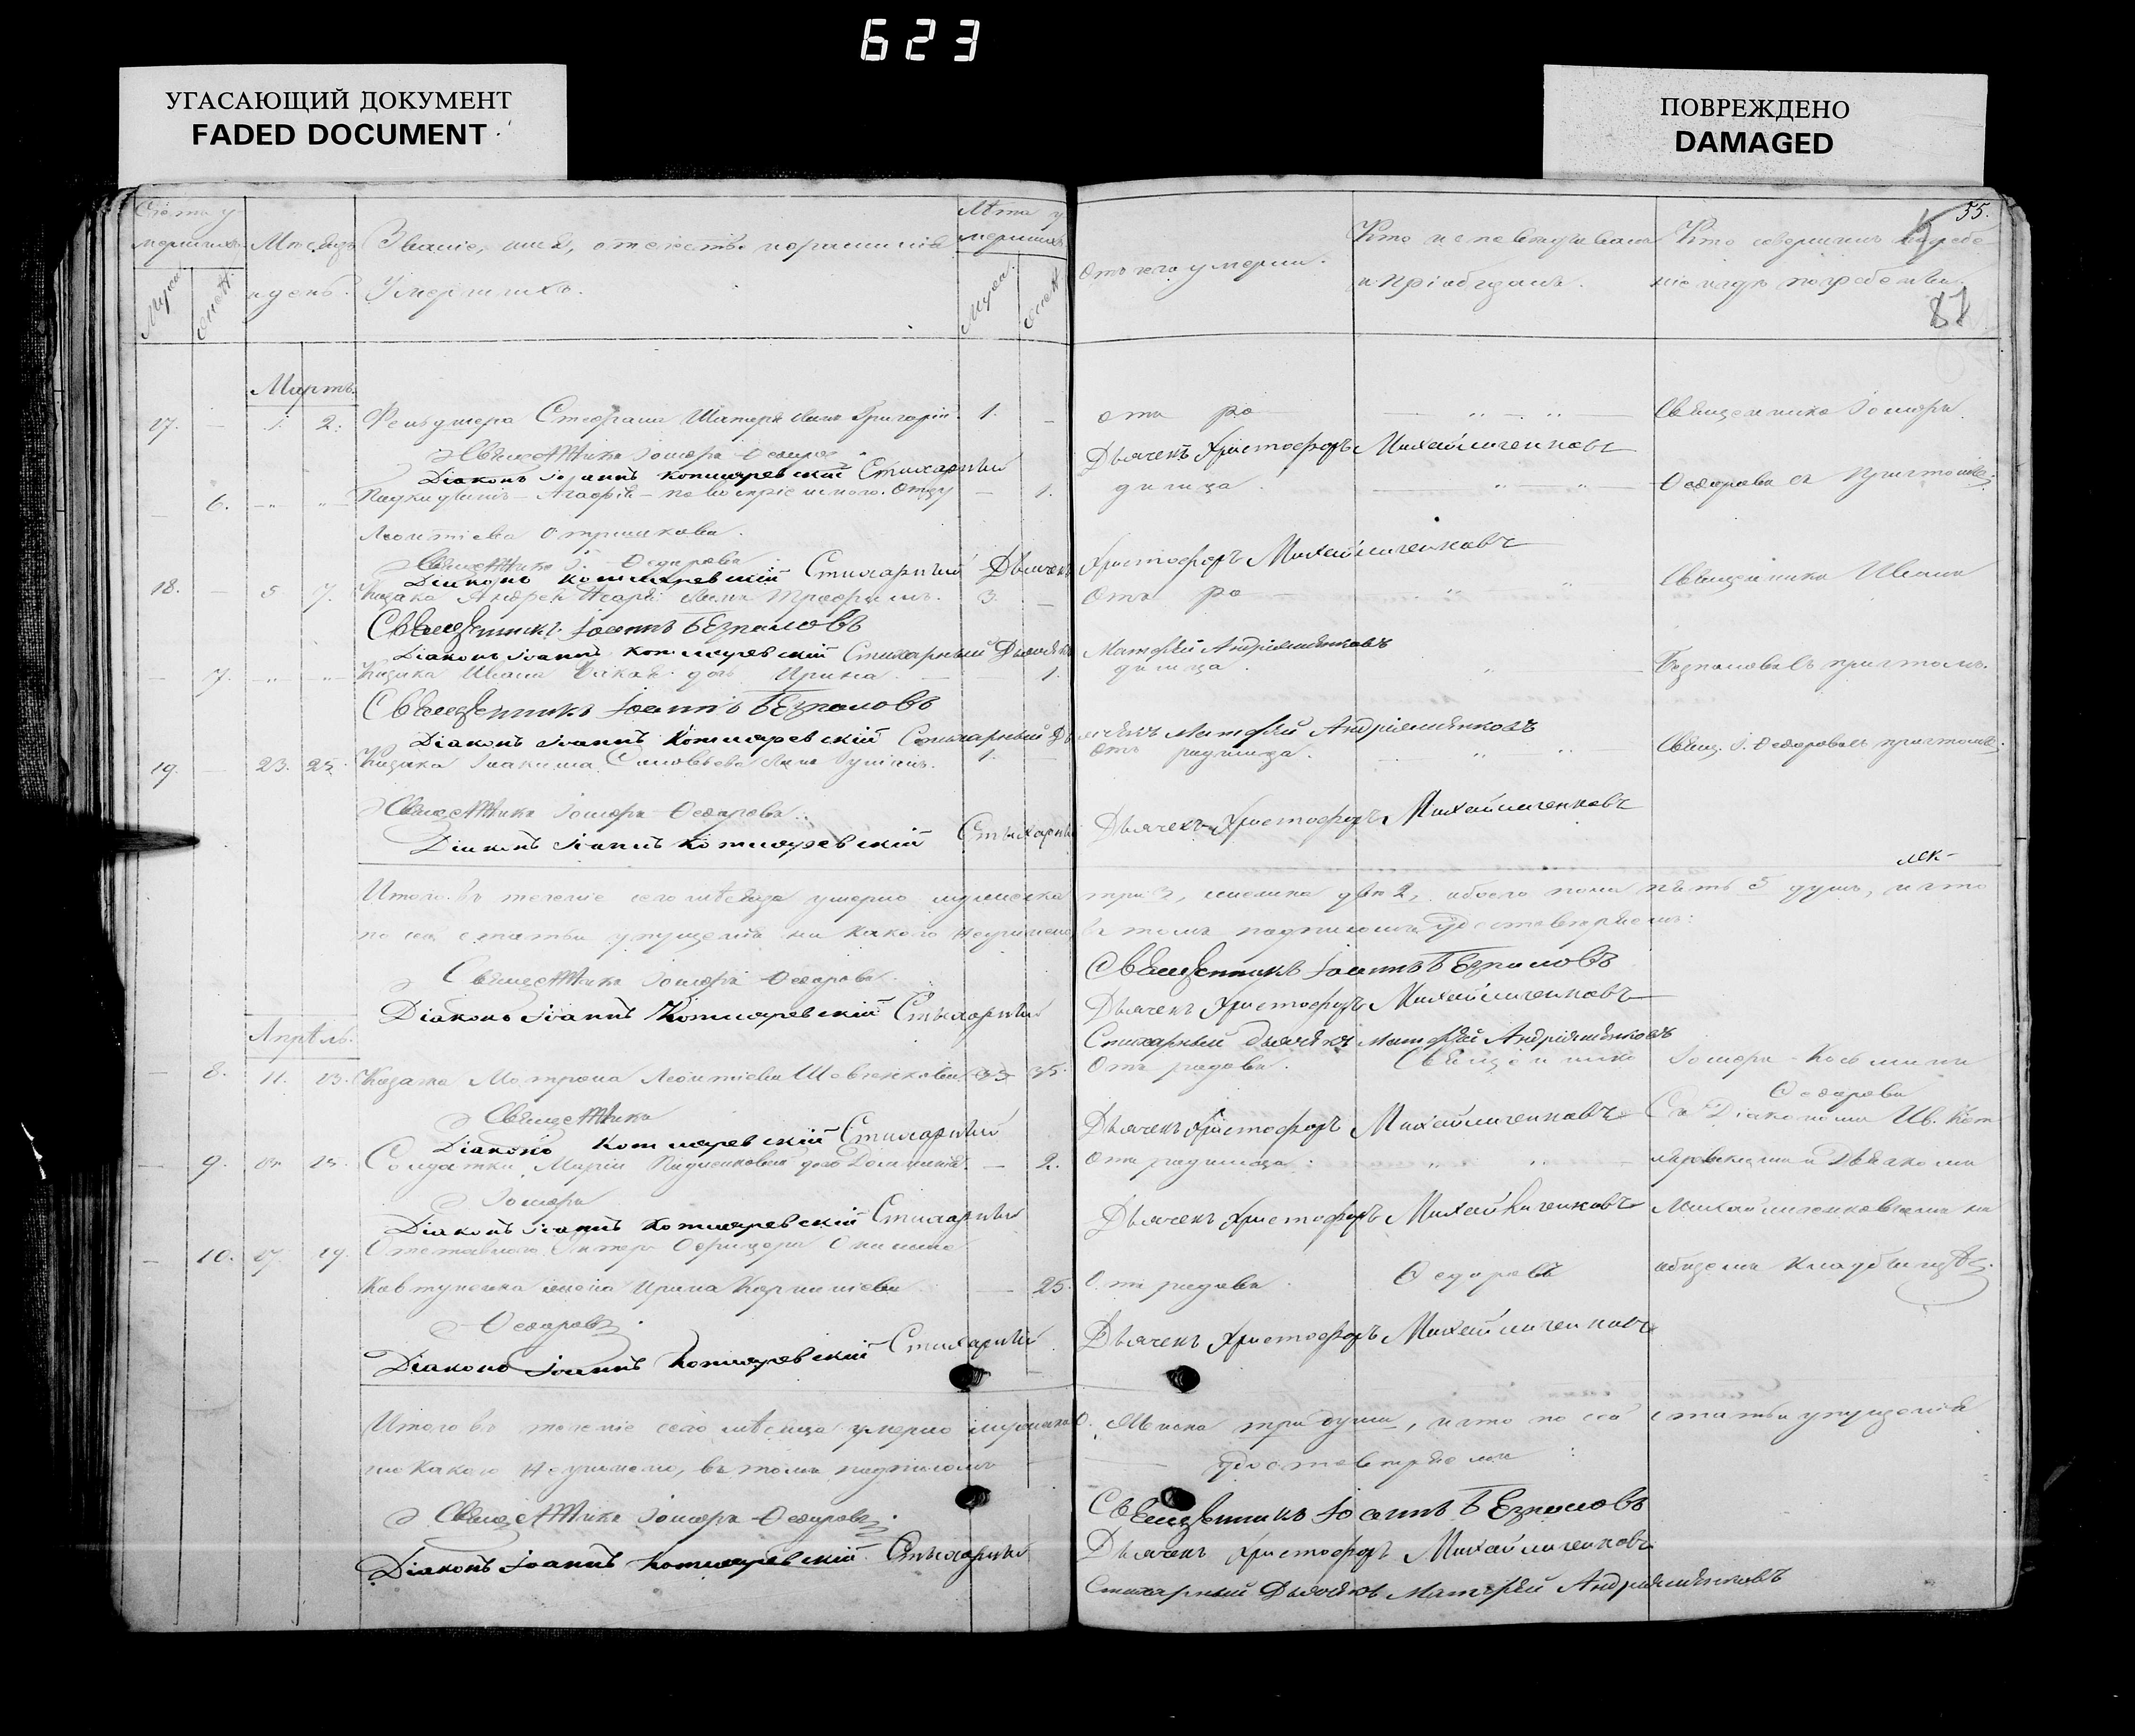 623
УГАСАЮЩИЙ ДОКУМЕНТ
FADED DOCUMENT
ПОВРЕЖДЕНО
DAMAGED
55.
87
Счетъ у
мершихъ.
Мужеск.
Женск.
Мѣсяцъ
и день.
Званіе, имя, отчество
Умершихъ.
Лѣта у
мершихъ
Мужеск.
Женск.
Отъ чего умерли.
Кто исповѣдывалъ
и пріобщалъ.
Кто совершилъ погребе
ніе и гдѣ погребены.
Мартъ.
17. — 1. 2. Фельдшера Стефана сынъ Григорій. 1. —
отъ ро
Священникъ Іосифъ
Священникъ Іосифъ Ѳедоровъ
Діаконъ Іоаннъ Котляревскій Стихарный
Дьячекъ Христофоръ Михайличенковъ
— 6. Агафія — по воспріемному отцу — 1.
димца.
Ѳедоровъ съ причтомъ
Леонтіева
Священникъ І. Ѳедоровъ
Діаконъ Котляревскій Стихарный Дьячекъ
Христофоръ Михайличенковъ
18. — 5 7. Козака Андрея сынъ Трофимъ. 3. —
Отъ ро
Священникъ Иванъ
Священникъ Іоаннъ Безпаловъ
Діаконъ Іоаннъ Котляревскій Стихарный Дьячекъ
Матфей Андріяшенковъ
— 7. Козака Ивана дочь Ирина. — 1.
димца.
Безпаловъ съ причтомъ.
Священникъ Іоаннъ Безпаловъ
Діаконъ Іоаннъ Котляревскій Стихарный Дьячекъ Матфей Андріяшенковъ
19. — 23. 25. Козака Іоакима Соловьева сынъ 1. —
Отъ родимца.
Свящ. І. Ѳедоровъ съ причтомъ.
Священникъ Іосифъ Ѳедоровъ
Діаконъ Іоаннъ Котляревскій Стихарный
Дьячекъ Христофоръ Михайличенковъ
Итого въ теченіе сего мѣсяца умерло мужеска
три 3, женска двѣ 2, обоего пола пять 5 душъ, и что
по сей статьи упущенія ни какого неучинено,
въ томъ подписомъ удостовѣряемъ:
Священникъ Іосифъ Ѳедоровъ
Священникъ Іоаннъ Безпаловъ
Діаконъ Іоаннъ Котляревскій Стихарный
Дьячекъ Христофоръ Михайличенковъ
Стихарный Дьячекъ Матфей Андріяшенковъ
Апрѣль.
— 8. 11. 13. Козачка Матрона Леонтіева Шевченкова 35.
Отъ родовъ.
Священникъ
Іосифъ Косьминъ
Ѳедоровъ
Священникъ
Діаконъ Котляревскій Стихарный
Дьячекъ Христофоръ Михайличенковъ
Съ Діакономъ Ив. Кот
— 9. 25. Солдатки Маріи дочь — 2.
Отъ родимца.
ляревскимъ и Дьячкомъ
Іосифъ
Діаконъ Іоаннъ Котляревскій Стихарный
Дьячекъ Христофоръ Михайличенковъ
Михайличенковымъ на
— 10. 17. 19. Отставнаго Унтеръ Офицера
Ковтуненка жена Ирина — 25.
Отъ родовъ.
Ѳедоровъ
общемъ кладбищѣ.
Ѳедоровъ
Діаконъ Іоаннъ Котляревскій Стихарный
Дьячекъ Христофоръ Михайличенковъ
Итого въ теченіе сего мѣсяца умерло мужеска
0. Женска три души, и что по сей статьи упущенія
ни какого неучинено, въ томъ подписомъ
удостовѣряемъ:
Священникъ Іосифъ Ѳедоровъ
Священникъ Іоаннъ Безпаловъ
Діаконъ Іоаннъ Котляревскій Стихарный
Дьячекъ Христофоръ Михайличенковъ
Стихарный Дьячекъ Матфей Андріяшенковъ